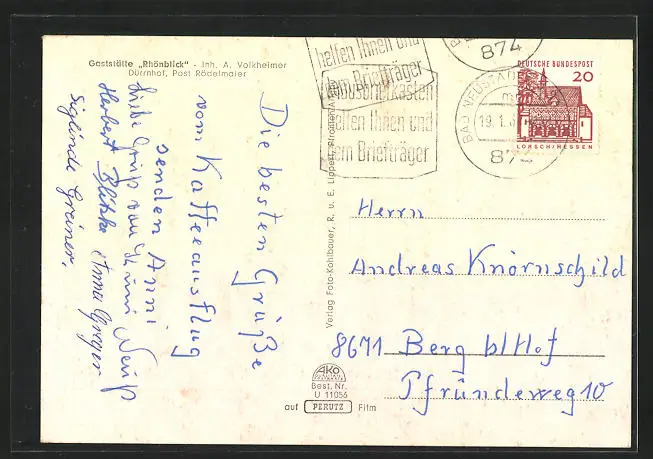 Gaststätte „Rhönblick" - Inh. A. Volkheimer
Dürrnhof, Post Rödelmaier
Die besten Grüße
vom Kaffeeausflug
senden Anni
Liebe Grüße von
Herbert
Siglinde Greiner.
Verlag Foto-Kohlbauer, R. u. E. Lippert,
helfen Ihnen und
dem Briefträger
Hausbriefkästen
helfen Ihnen und
dem Briefträger
874
BAD NEUSTADT
19.1.
87
DEUTSCHE BUNDESPOST
20
LORSCH/HESSEN
Herrn
Andreas Knörnschild
8671 Berg b/Hof
Pfründeweg 10
AKO
Best. Nr.
U 11056
auf PERUTZ Film